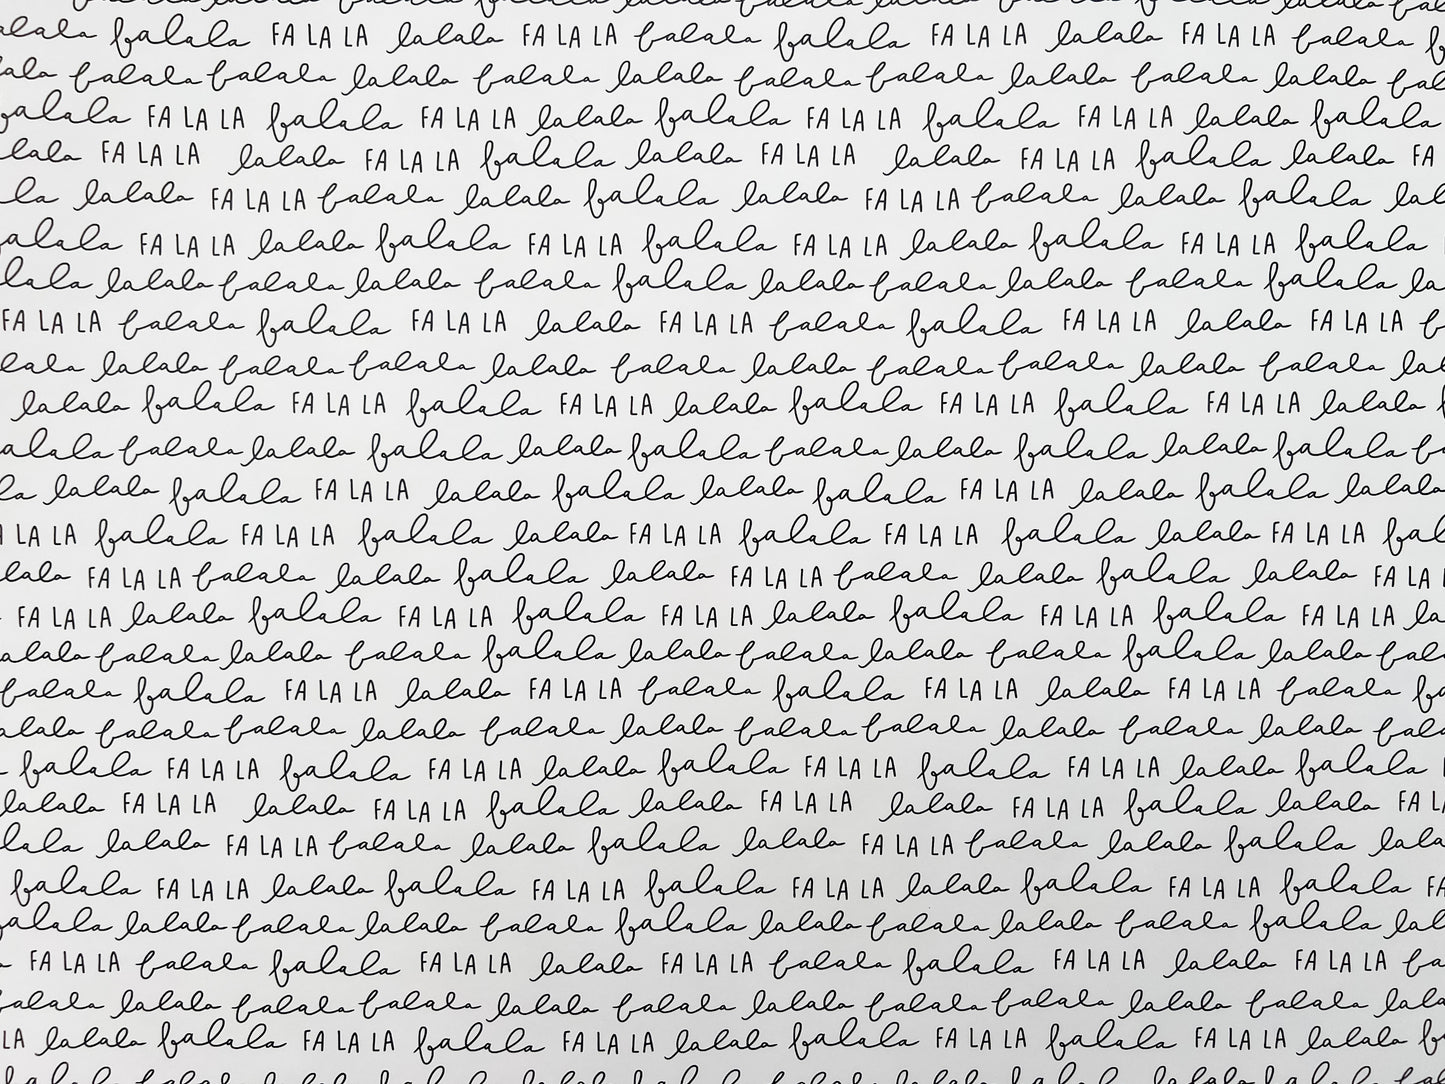 alala falala FA LA LA lalala FA LA LA falala falala FA LA LA lalala FA LA LA falala
ala falala falala lalala falala lalala falala falala lalala falala lalala fal
falala FA LA LA falala FA LA LA lalala falala FA LA LA falala FA LA LA lalala falala
lala FA LA LA lalala FA LA LA falala lalala FA LA LA lalala FA LA LA falala lalala FA
la lalala FA LA LA falala lalala falala lalala FA LA LA falala lalala falala lal
alala FA LA LA lalala falala FA LA LA falala FA LA LA lalala falala FA LA LA falala
lala lalala falala lalala falala falala lalala falala lalala falala falala la
FA LA LA falala falala FA LA LA lalala FA LA LA falala falala FA LA LA lalala FA LA LA f
lala lalala falala falala lalala falala lalala falala falala lalala falala la
lalala falala FA LA LA falala FA LA LA lalala falala FA LA LA falala FA LA LA lalala
alala falala lalala falala lalala falala falala lalala falala lalala falala f
la lalala falala FA LA LA lalala falala lalala falala FA LA LA lalala falala lalala
A LA LA falala FA LA LA falala lalala FA LA LA falala FA LA LA falala lalala FA LA LA fal
lala FA LA LA falala lalala falala lalala FA LA LA falala lalala falala lalala FA LA
FA LA LA lalala falala FA LA LA falala FA LA LA lalala falala FA LA LA falala FA LA LA la
alala falala lalala falala falala lalala falala lalala falala falala lalala fal
falala falala FA LA LA lalala FA LA LA falala falala FA LA LA lalala FA LA LA falala fa
alala falala falala lalala falala lalala falala falala lalala falala lalala fal
falala FA LA LA falala FA LA LA lalala falala FA LA LA falala FA LA LA lalala falala
lalala FA LA LA lalala FA LA LA falala lalala FA LA LA lalala FA LA LA falala lalala FA L
lala lalala FA LA LA falala lalala falala lalala FA LA LA falala lalala falala lala
falala FA LA LA lalala falala FA LA LA falala FA LA LA lalala falala FA LA LA falala FA
falala lalala falala lalala falala falala lalala falala lalala falala falala lal
FA LA LA falala falala FA LA LA lalala FA LA LA falala falala FA LA LA lalala FA LA LA fa
falala lalala falala falala lalala falala lalala falala falala lalala falala lala
LA lalala falala FA LA LA falala FA LA LA lalala falala FA LA LA falala FA LA LA lalala f